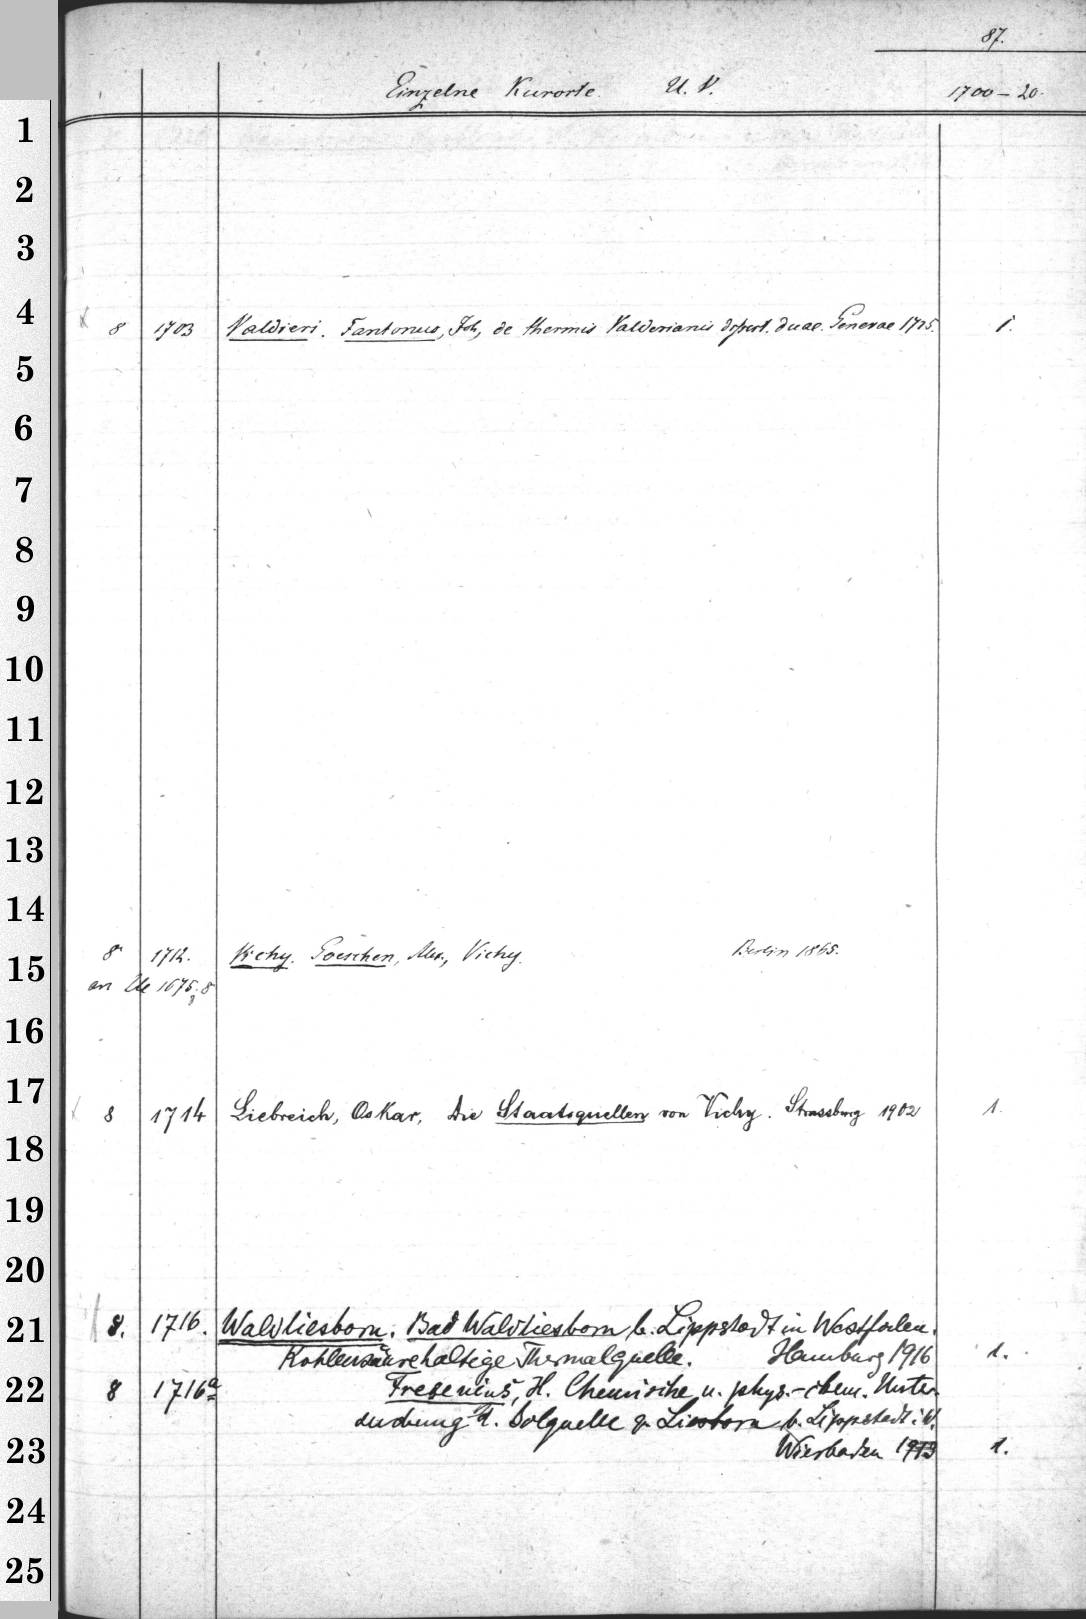 87.
Einzelne Kurorte. U. V. 1700-20.
1
2
3
4
8 1703 Valdieri. Fantonus, Joh, de thermis Valderianis dissert. duae. Genevae 1725. 1.
5
6
7
8
9
10
11
12
13
14
8° 1712. Vichy. Goeschen, Alex., Vichy. Berlin 1865.
15
an Ue 1675; 8
16
17
8 1714 Liebreich, Oskar, Die Staatsquellen von Vichy. Strassburg 1902 1.
18
19
20
21
8. 1716. Waldliesborn. Bad Waldliesborn b. Lippstadt in Westfalen.
Kohlensäurehaltige Thermalquelle. Hamburg 1916 1.
22
8 1716a Fresenius, H. Chemische u. phys.-chem. Unter-
suchung d. Solquelle zu Liesborn b. Lippstadt i. W.
23
Wiesbaden 1913 1.
24
25